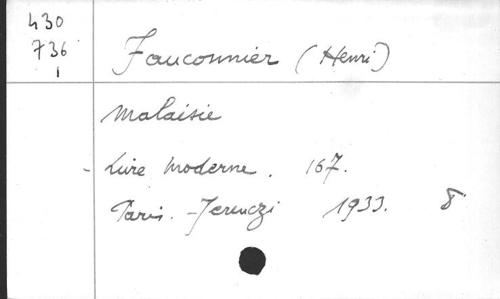 430
736
1
Fauconnier (Henri)
Malaisie
- Livre Moderne. 167.
Paris. - Ferenczi 1933. 8